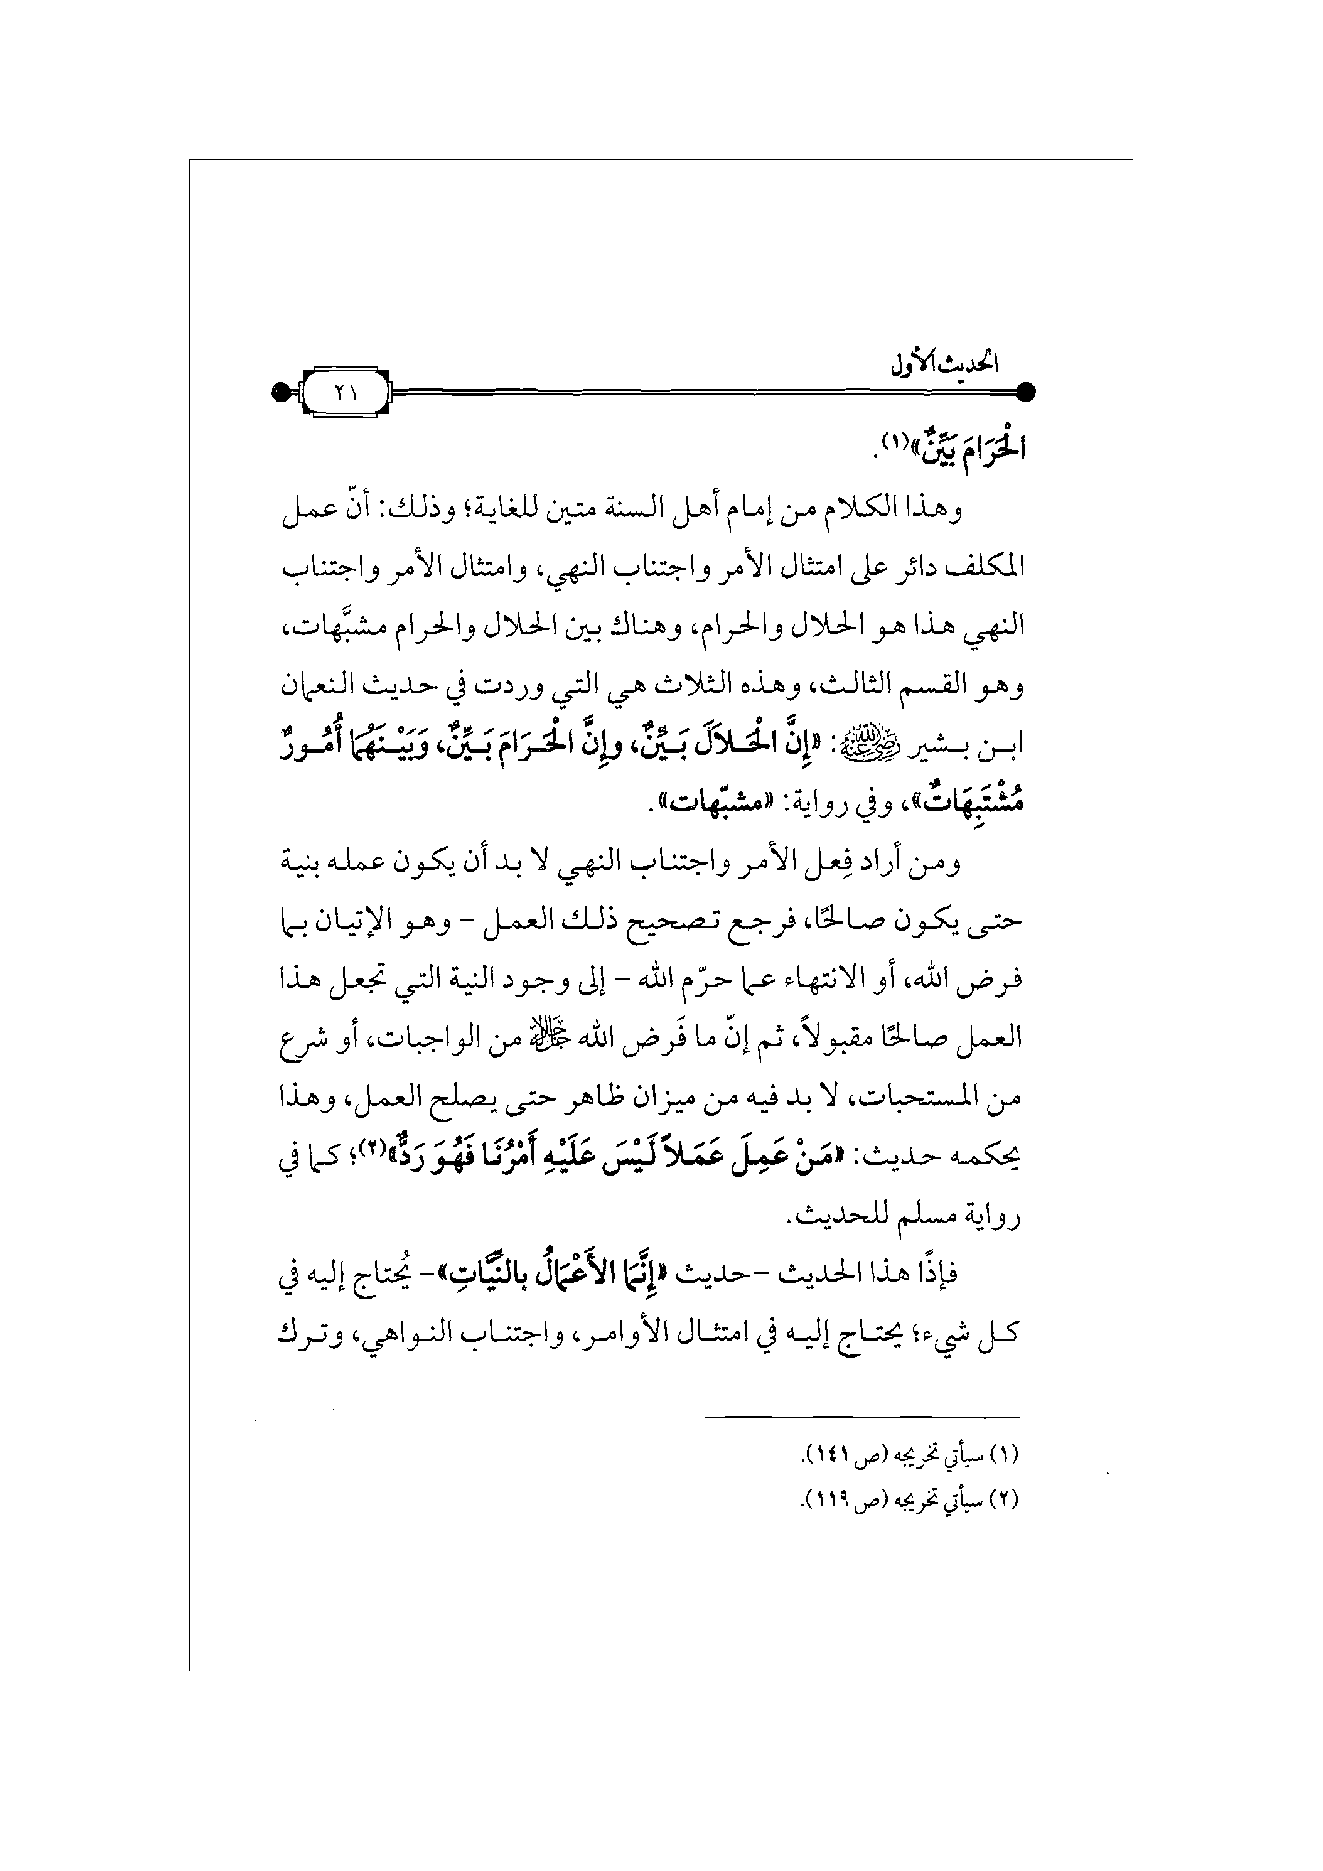 الحديث الأول
٢١
الْحَرَامَ بَيِّنٌ»(١).
وهذا الكلام من إمام أهل السنة متين للغاية؛ وذلك: أنّ عمل
المكلف دائر على امتثال الأمر واجتناب النهي، وامتثال الأمر واجتناب
النهي هذا هو الحلال والحرام، وهناك بين الحلال والحرام مشبَّهات،
وهو القسم الثالث، وهذه الثلاث هي التي وردت في حديث النعمان
ابن بشير ﵁: «إِنَّ الْحَلاَلَ بَيِّنٌ، وإِنَّ الْحَرَامَ بَيِّنٌ، وَبَيْنَهُمَا أُمُورٌ
مُشْتَبِهَاتٌ»، وفي رواية: «مشبّهات».
ومن أراد فِعل الأمر واجتناب النهي لا بد أن يكون عمله بنية
حتى يكون صالحًا، فرجع تصحيح ذلك العمل – وهو الإتيان بما
فرض الله، أو الانتهاء عما حرّم الله – إلى وجود النية التي تجعل هذا
العمل صالحًا مقبولاً، ثم إنّ ما فَرض الله ﷻ من الواجبات، أو شرع
من المستحبات، لا بد فيه من ميزان ظاهر حتى يصلح العمل، وهذا
يحكمه حديث: «مَنْ عَمِلَ عَمَلاً لَيْسَ عَلَيْهِ أَمْرُنَا فَهُوَ رَدٌّ»(٢)؛ كما في
رواية مسلم للحديث.
فإذًا هذا الحديث –حديث «إِنَّمَا الأَعْمَالُ بالنِّيَّاتِ»– يُحتاج إليه في
كل شيء؛ يحتاج إليه في امتثال الأوامر، واجتناب النواهي، وترك
(١) سيأتي تخريجه (ص ١٤١).
(٢) سيأتي تخريجه (ص ١١٩).